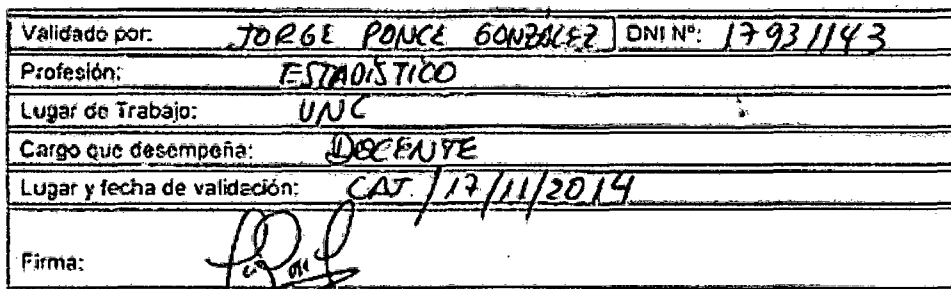 Validado por: JORGE PONCE GONZALEZ DNI Nº: 17931143
Profesión: ESTADÍSTICO
Lugar de Trabajo: UNC
Cargo que desempeña: DOCENTE
Lugar y fecha de validación: CAJ. / 17/11/2014
Firma: